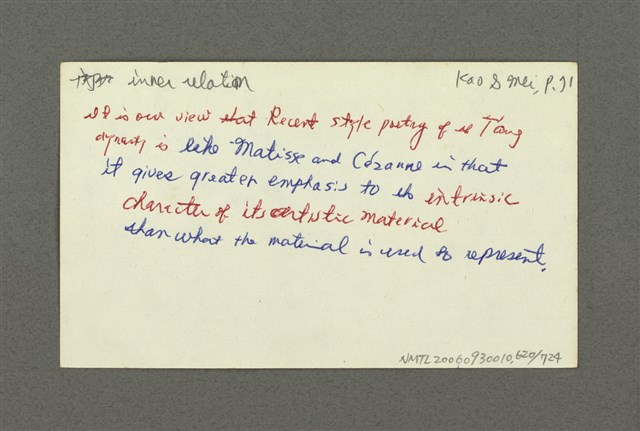 inner relation
Kao & Mei, P. 71
It is our view that Recent style poetry of the T'ang
dynasty is like Matisse and Cézanne in that
it gives greater emphasis to the intrinsic
character of its artistic material
than what the material is used to represent.
NMTL20060930010,620/724